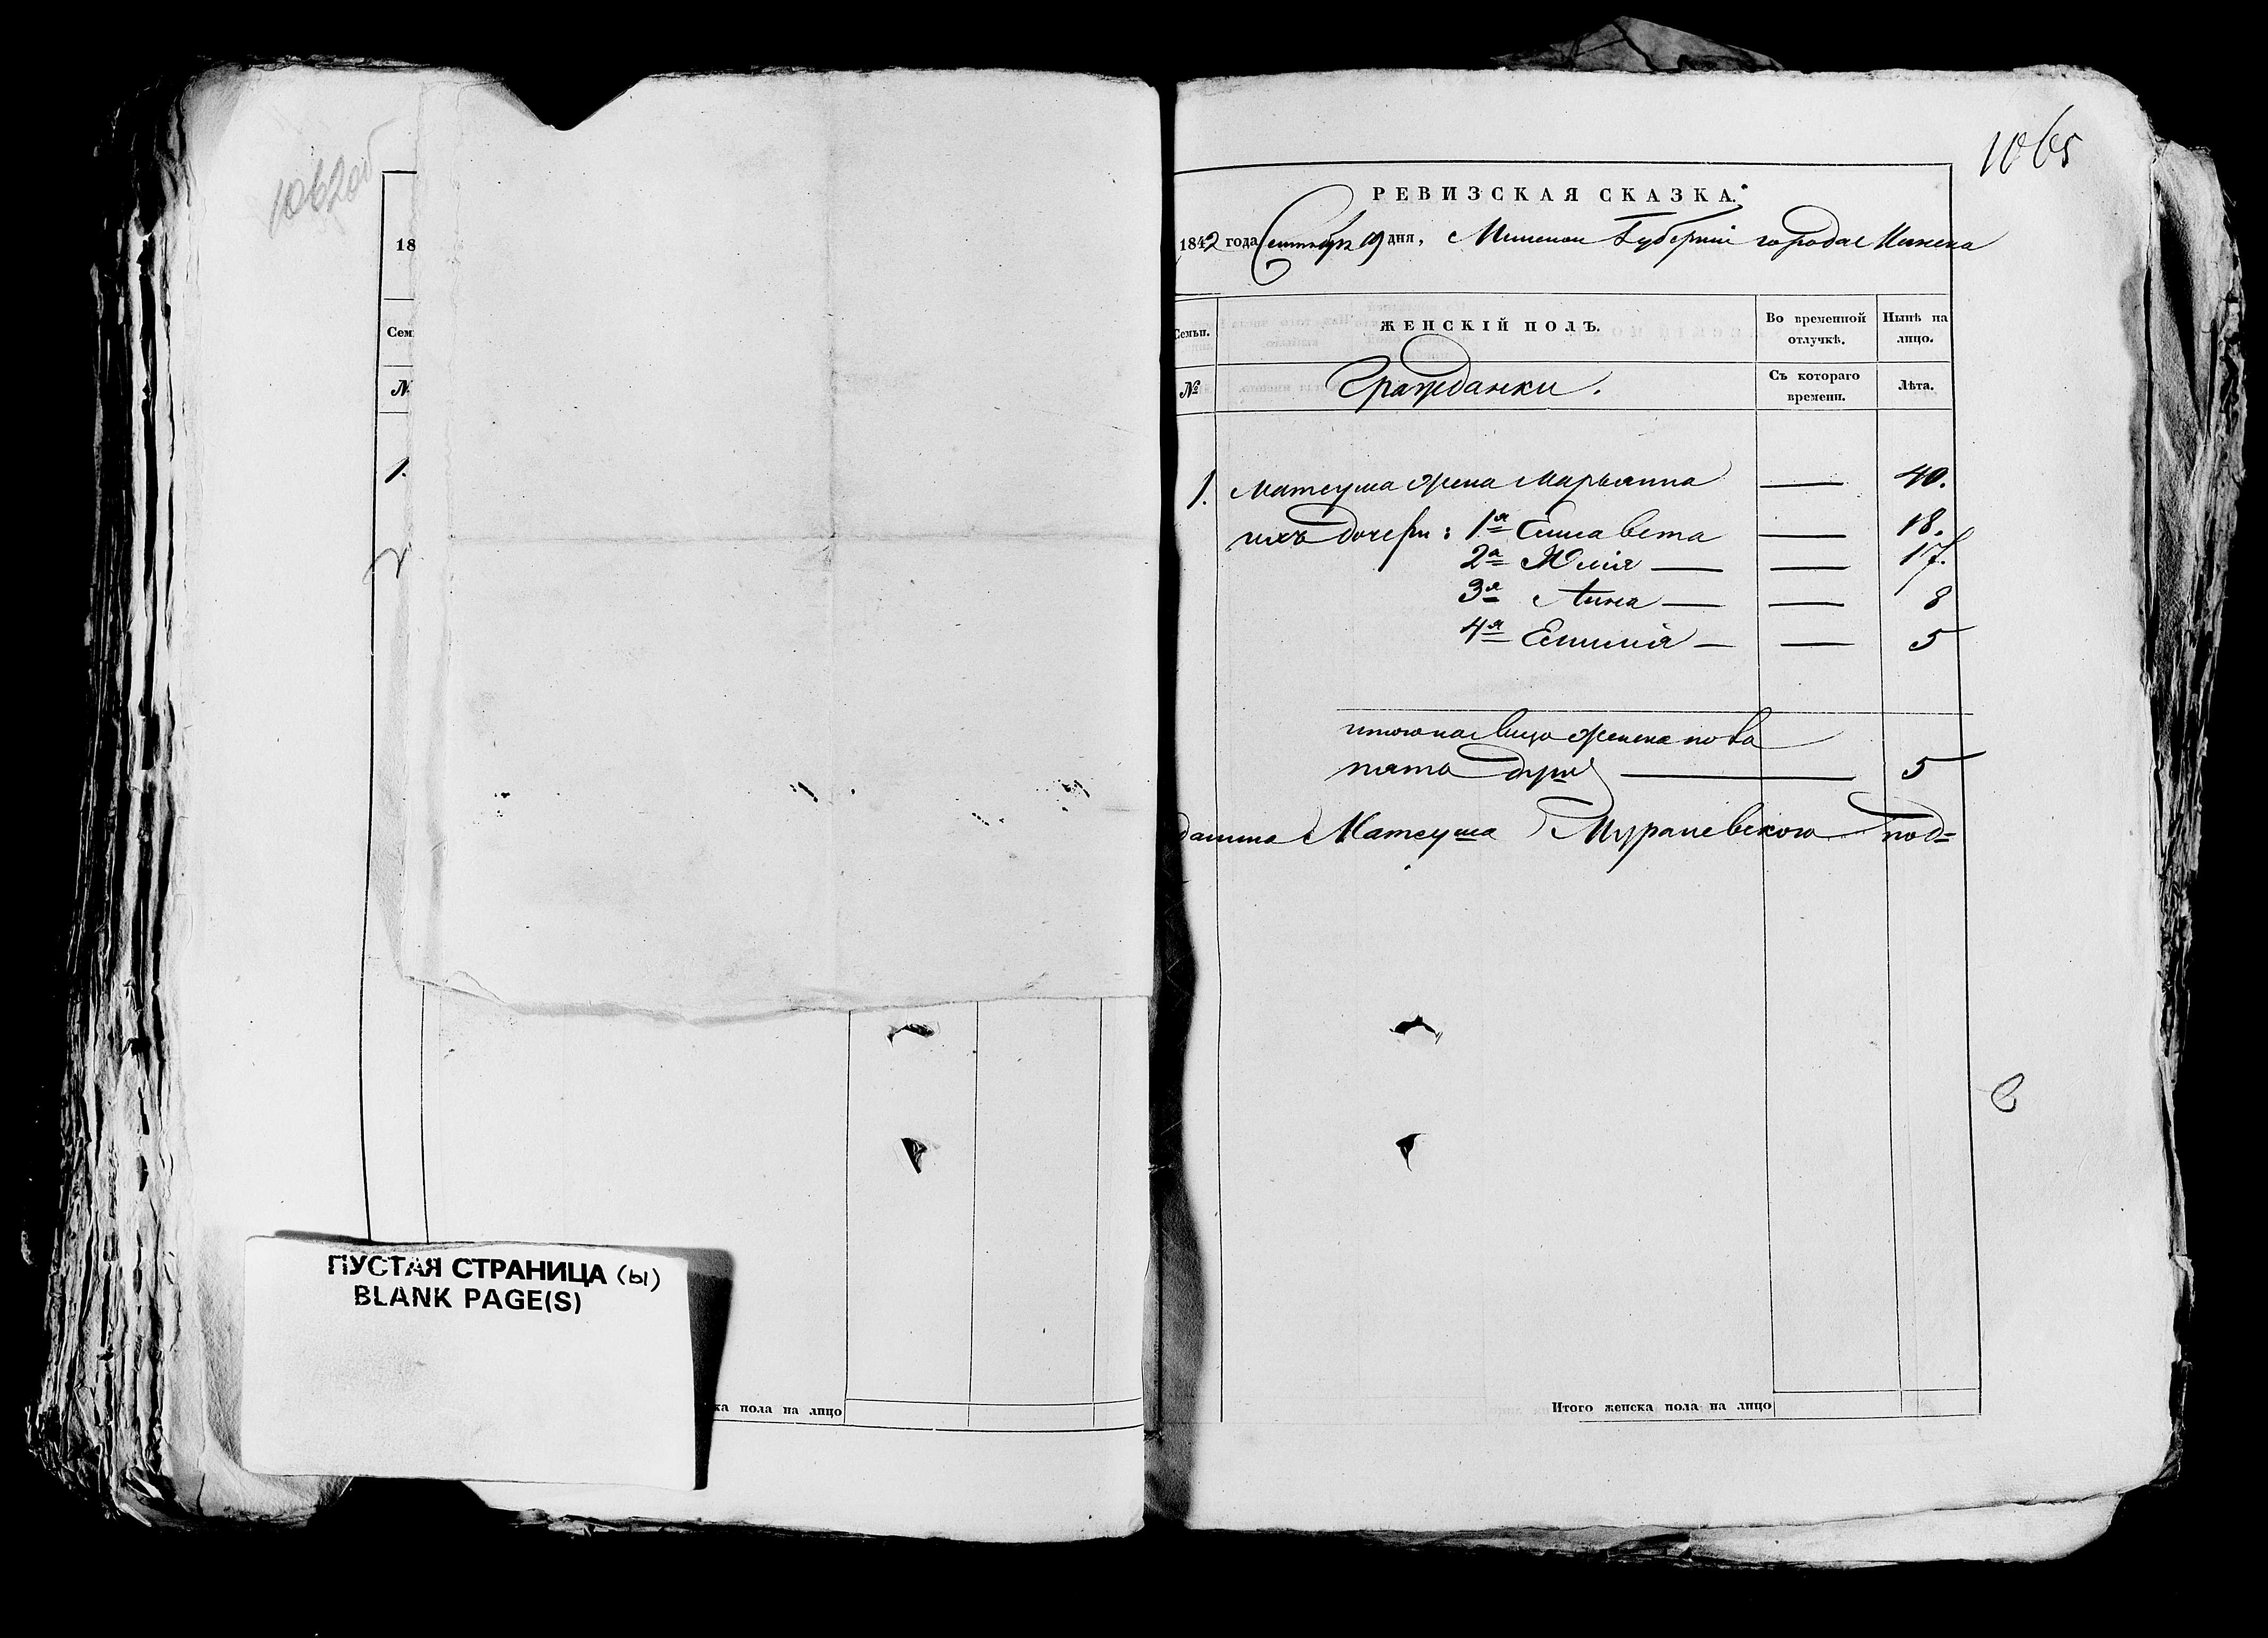 1062об
18
Сем
№
1.
ПУСТАЯ СТРАНИЦА (ы)
BLANK PAGE(S)
ка пола на лицо
1065
РЕВИЗСКАЯ СКАЗКА.
1842 года Сентября 19 дня, Минской Губерніи города Минска
Семьи. ЖЕНСКІЙ ПОЛЪ. Во временной отлучкѣ. Нынѣ на лицо.
№ Гражданки. Съ котораго времени. Лѣта.
1. Матеуша жена Марьянна — 40.
ихъ дочери: 1я Елисавета — 18.
2я Юлія — — 17.
3я Анна — — 8
4я Емилія — — 5
итого на лицо женска пола
пять душъ — 5
данина Матеуша Мурашевского под=
Итого женска пола на лицо